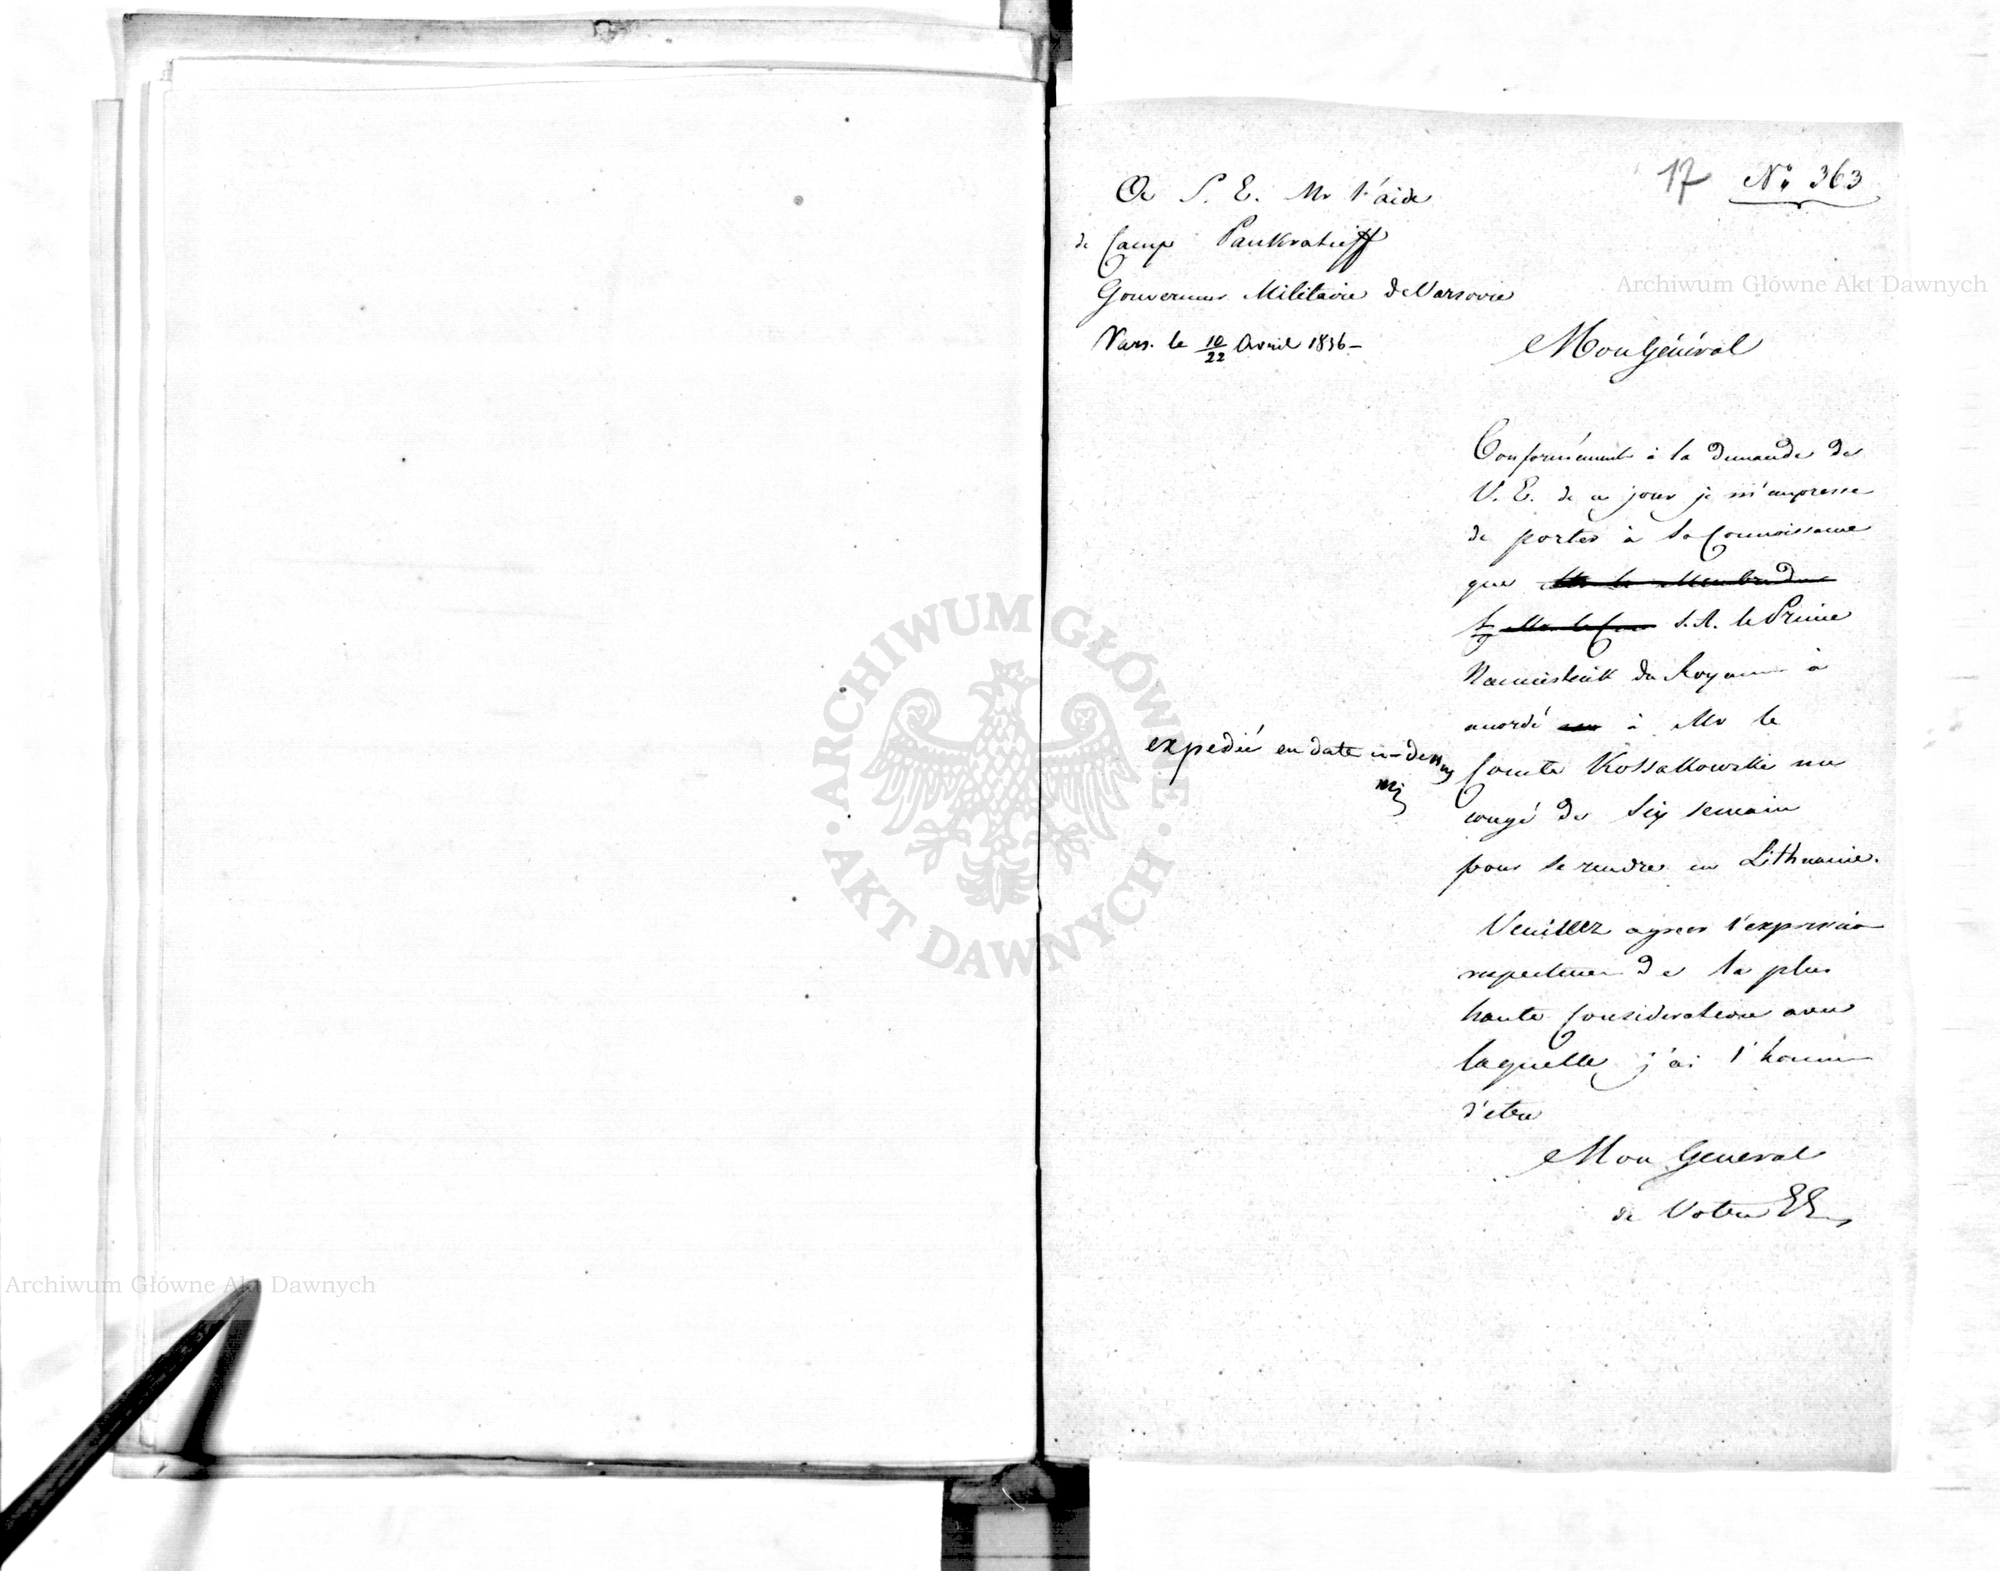 17 No 363
A S. E. Mr l'aide
de Camp Pankratieff
Gouverneur Militaire de Varsovie
Vars. le 10/22 Avril 1836 –
Mon Général
Conformément à la demande de
V. E. de ce jour je m'empresse
de porter à sa Connoissance
que
S. A. le Prince
Namiestnik du Royaume à
accordé à Mr le
Comte Kossakowski un
congé de Six semain
pour se rendre en Lithuanie.
expedié en date ci-dessus
Veuillez agreer l'expression
respectueuse de la plus
haute Consideration avec
laquelle j'ai l'honneur
d'etre
Mon General
de Votre
Archiwum Główne Akt Dawnych
ARCHIWUM GŁÓWNE AKT DAWNYCH
Archiwum Główne Akt Dawnych